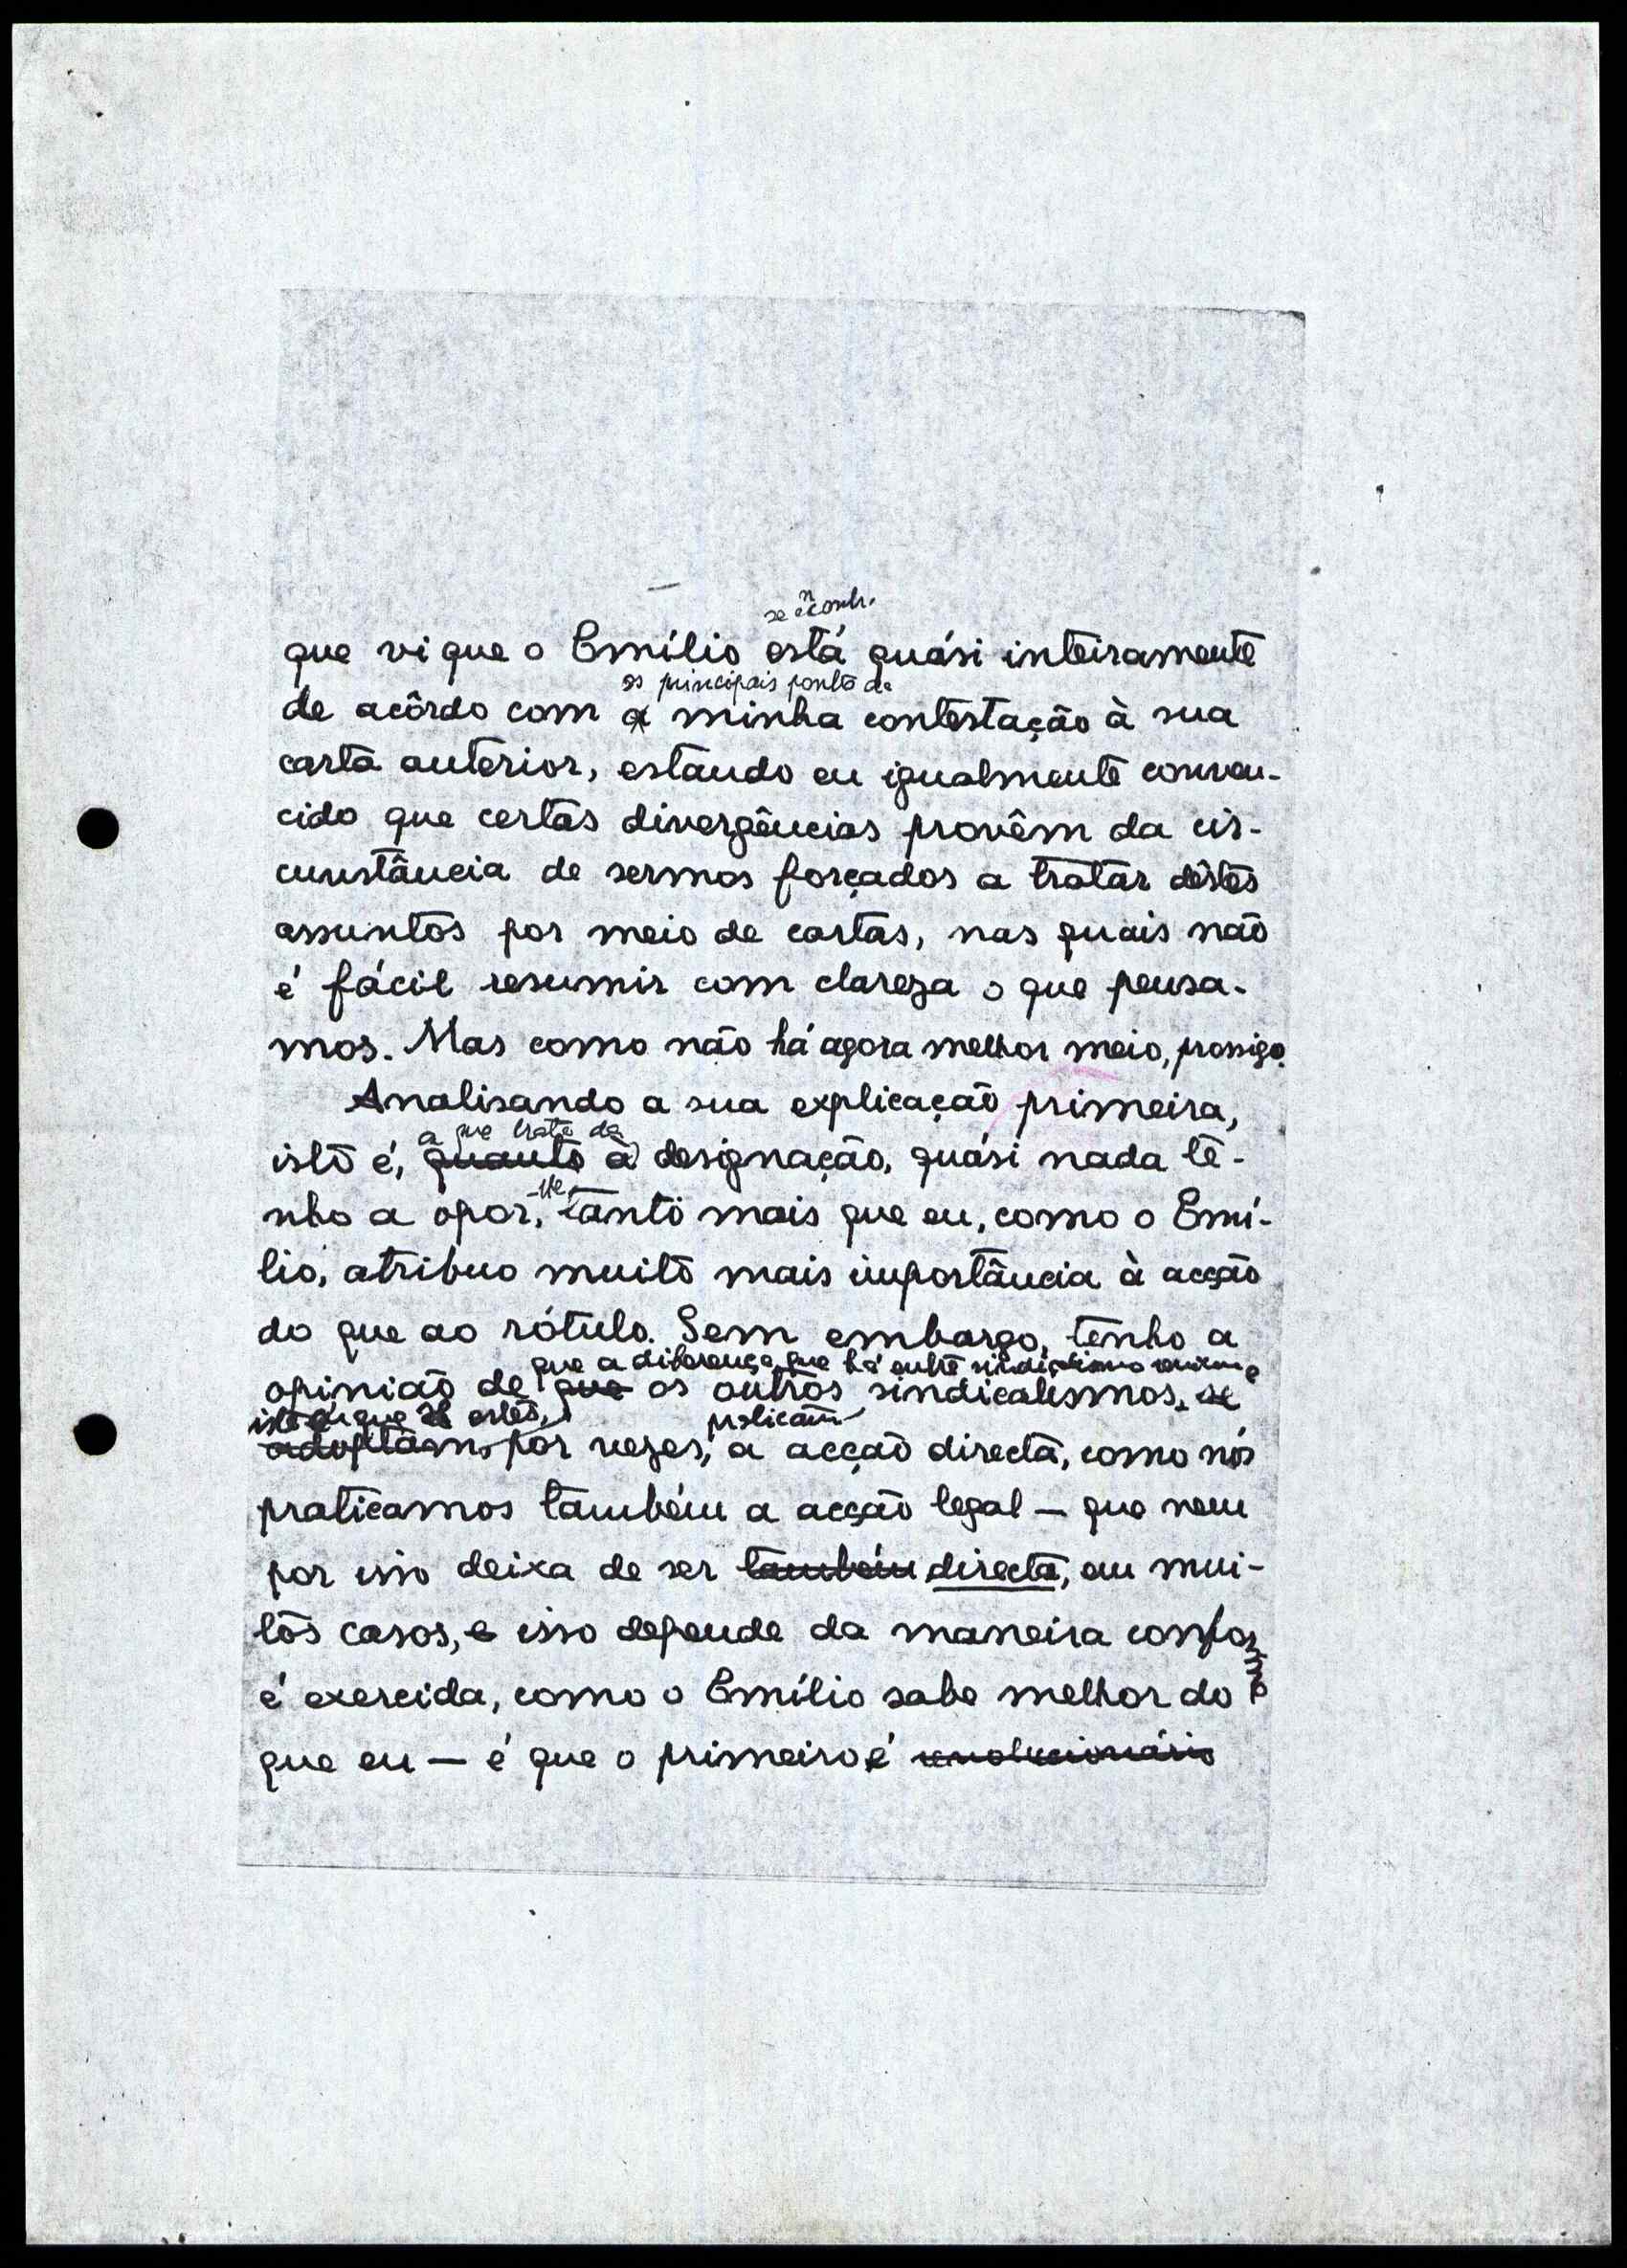 se encontr.
que vi que o Emílio está quási inteiramente
os principais ponto da
de acôrdo com a minha contestação à sua
carta anterior, estando eu igualmente conven-
cido que certas divergências provêm da cir-
cunstância de sermos forçados a tratar dêstes
assuntos por meio de cartas, nas quais não
é fácil resumir com clareza o que pensa-
mos. Mas como não há agora melhor meio, prossigo.
Analisando a sua explicação primeira,
a que trata da
isto é, quanto à designação, quási nada te-
-lhe,
nho a opor, tanto mais que eu, como o Emí-
lio, atribuo muito mais importância à acção
do que ao rótulo. Sem embargo, tenho a
que a diferença que há entre sindicalismo e
opinião de que os outros sindicalismos, se
isto é que estes,
praticam
adoptam, por vezes, a acção directa, como nós
praticamos também a acção legal — que nem
por isso deixa de ser também directa, em mui-
tos casos, e isso depende da maneira conforme
é exercida, como o Emílio sabe melhor do
que eu — é que o primeiro é revolucionário